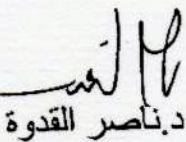 د.ناصر القدوة